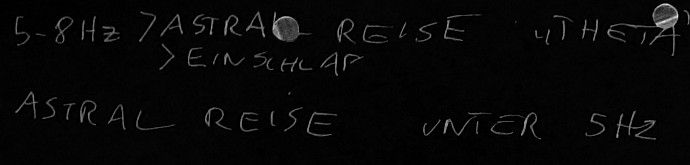 5-8HZ >ASTRAL REISE "THETA"
>EINSCHLAF
ASTRAL REISE UNTER 5HZ